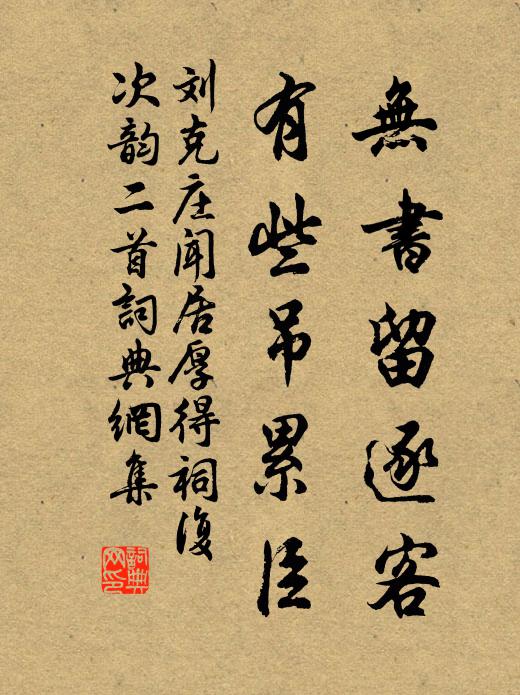 無書留逐客
有些吊累臣
刘克庄闻居厚得祠復
次韵二首詞典網集
詞典网印